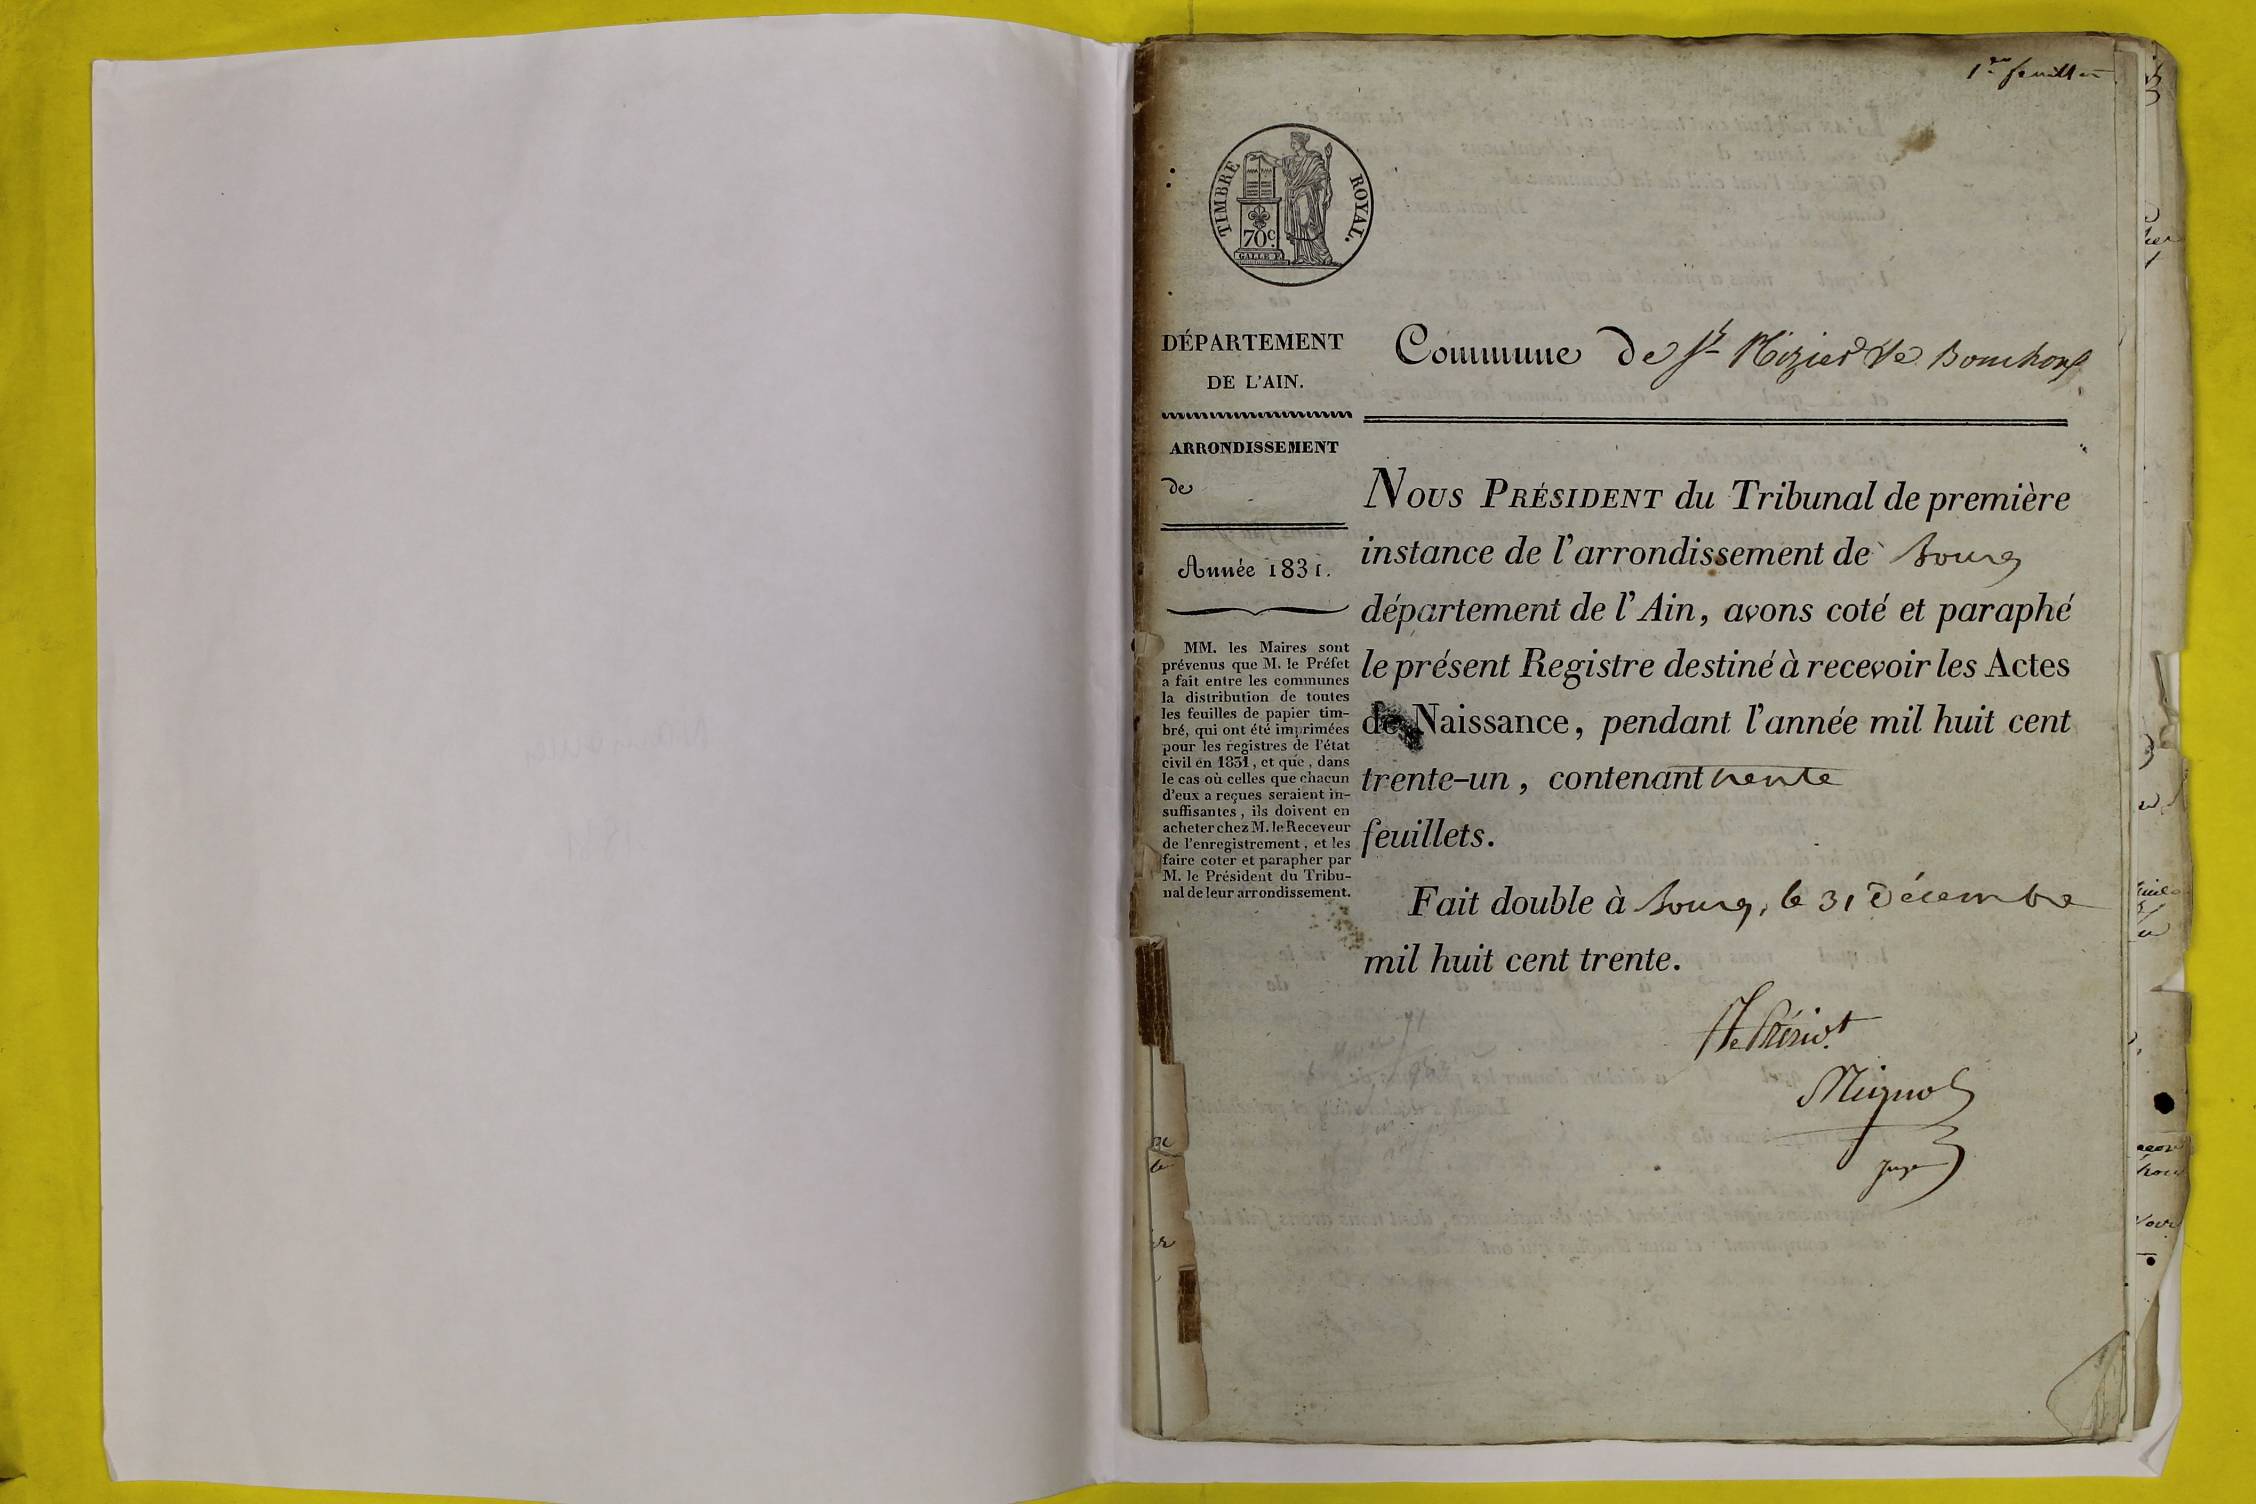 1er feuillet
TIMBRE ROYAL.
70c.
GALLE F.
DÉPARTEMENT
DE L'AIN.
ARRONDISSEMENT
de
Année 1831.
MM. les Maires sont
prévenus que M. le Préfet
a fait entre les communes
la distribution de toutes
les feuilles de papier tim-
bré, qui ont été imprimées
pour les registres de l'état
civil en 1831, et que, dans
le cas où celles que chacun
d'eux a reçues seraient in-
suffisantes, ils doivent en
acheter chez M. le Receveur
de l'enregistrement, et les
faire coter et parapher par
M. le Président du Tribu-
nal de leur arrondissement.
Commune de St Nizier le Bouchoux
NOUS PRÉSIDENT du Tribunal de première
instance de l'arrondissement de Bourg
département de l'Ain, avons coté et paraphé
le présent Registre destiné à recevoir les Actes
de Naissance, pendant l'année mil huit cent
trente-un, contenant trente
feuillets.
Fait double à Bourg, le 31 Décembre
mil huit cent trente.
Mignot
Juge